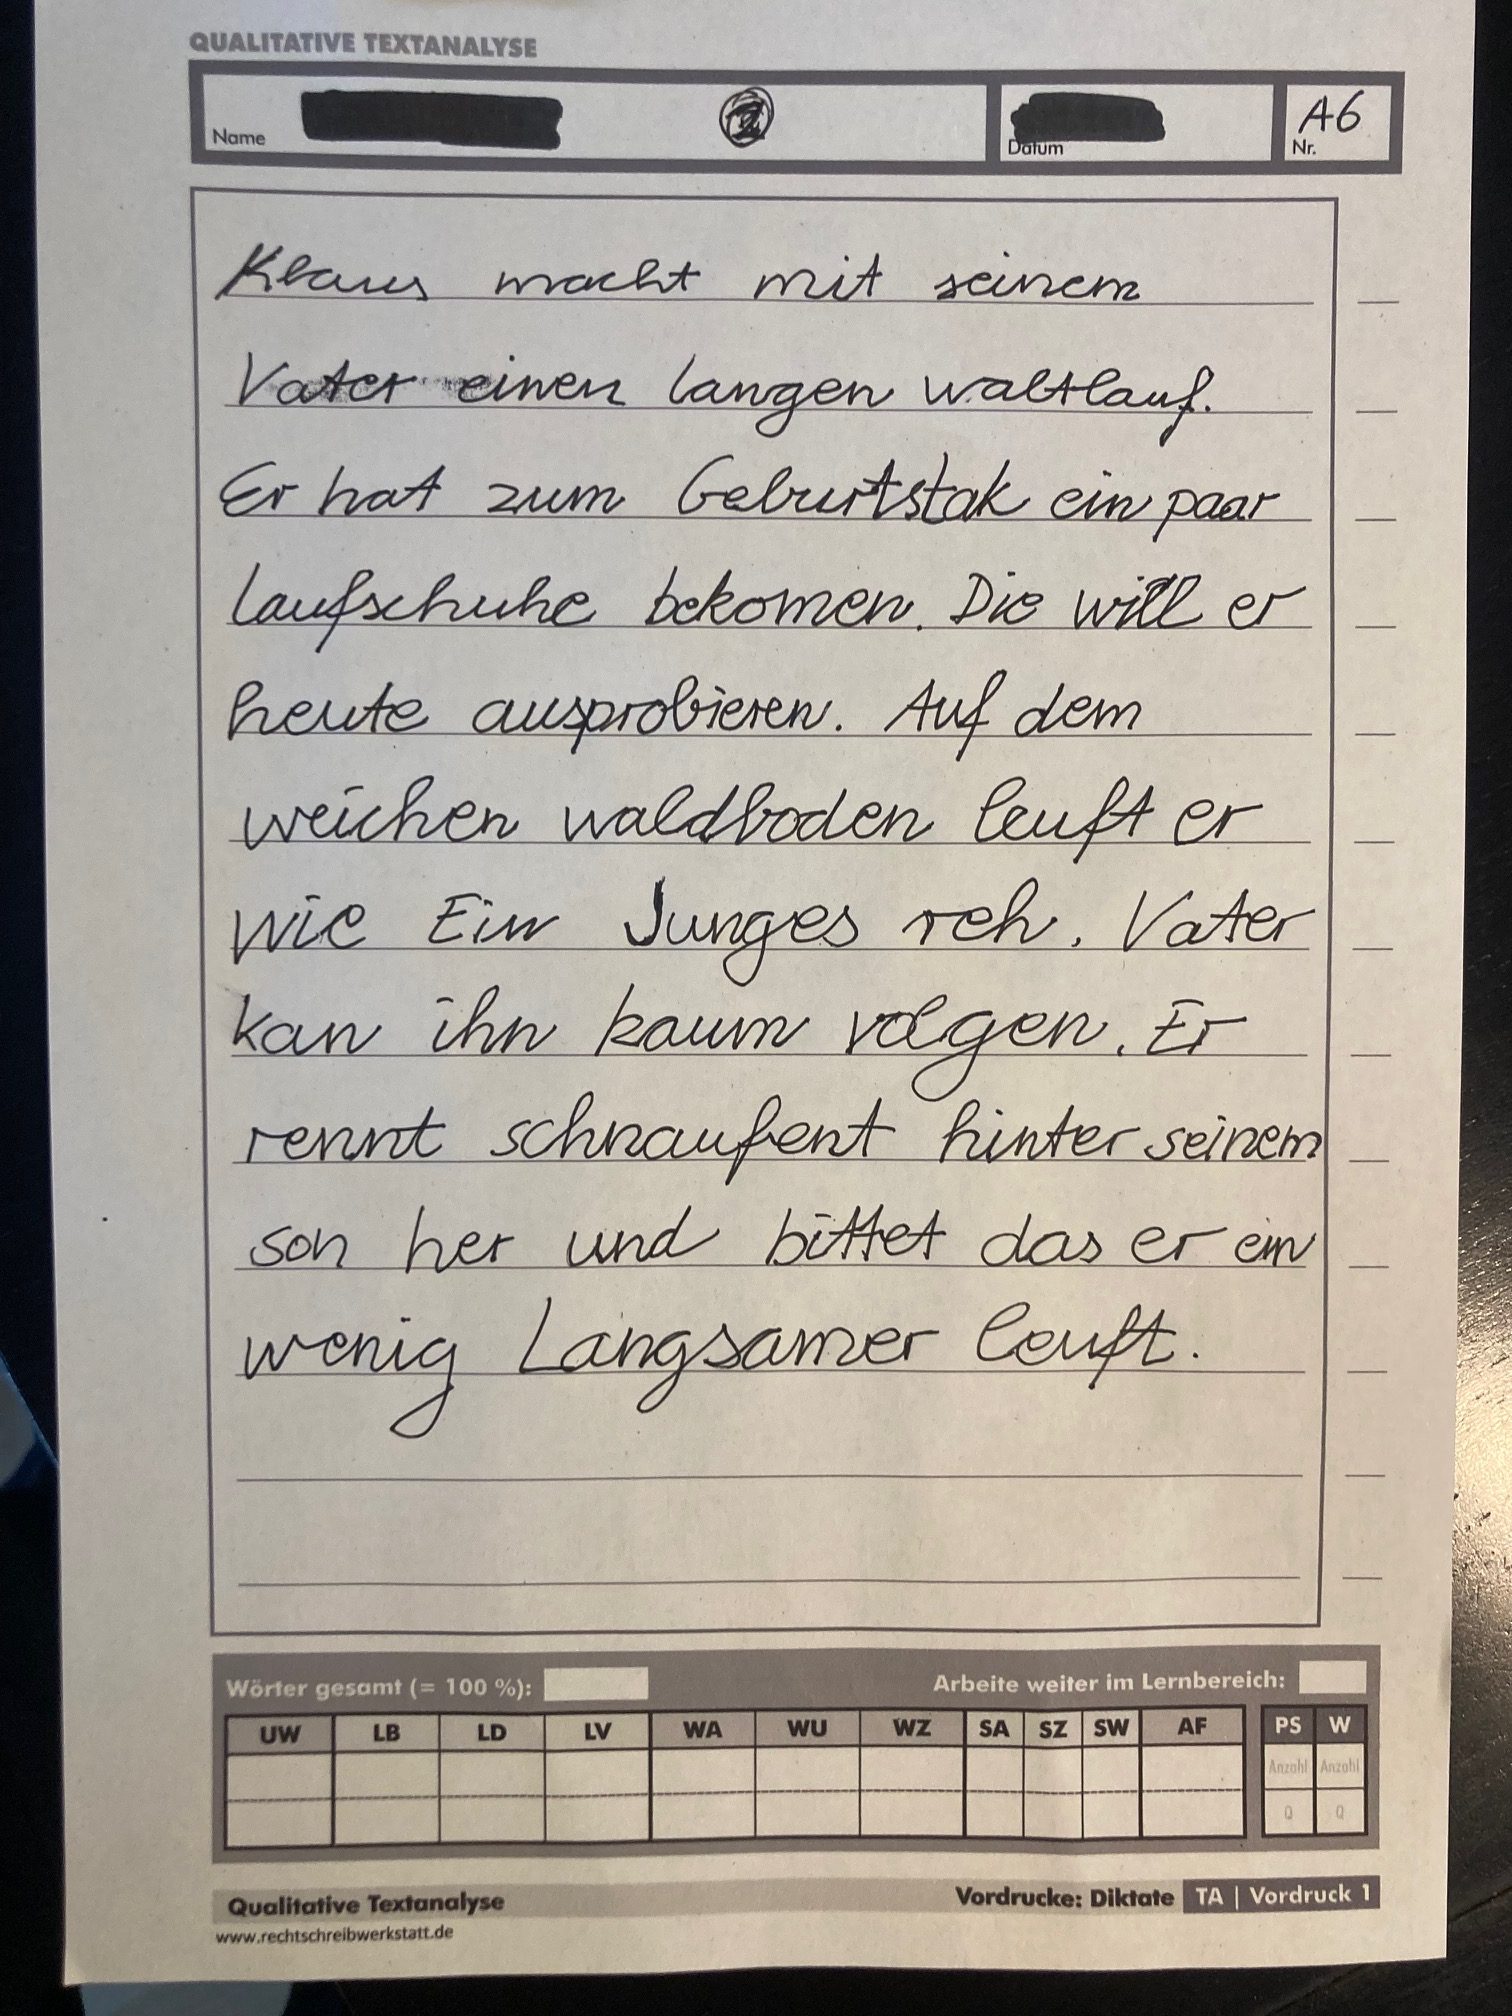 QUALITATIVE TEXTANALYSE
Name
Datum
A6
Nr.
Klaus macht mit seinem
Vater einen langen waltlauf.
Er hat zum Geburtstak ein paar
laufschuhe bekomen. Die will er
heute ausprobieren. Auf dem
weichen waldboden leuft er
wie Ein Junges reh. Vater
kan ihn kaum volgen. Er
rennt schnaufent hinter seinem
son her und bittet das er ein
wenig Langsamer leuft.
Wörter gesamt (= 100 %):
Arbeite weiter im Lernbereich:
UW LB LD LV WA WU WZ SA SZ SW AF PS W
Anzahl Anzahl
Q Q
Qualitative Textanalyse
Vordrucke: Diktate TA | Vordruck 1
www.rechtschreibwerkstatt.de